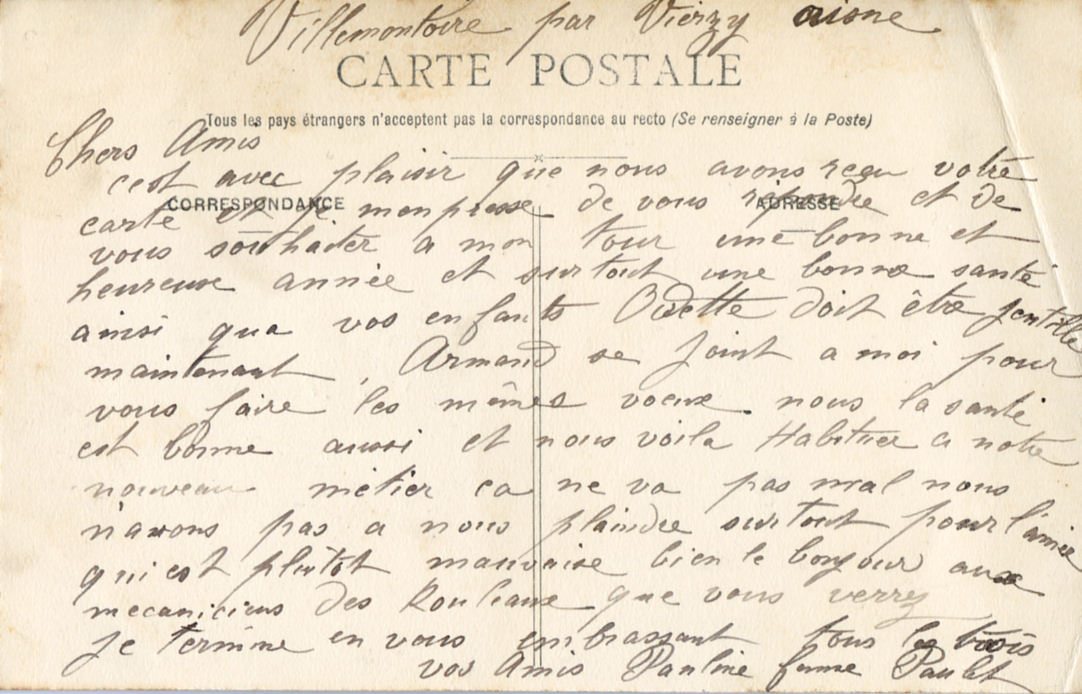 Villemontoire par Vierzy aisne
CARTE POSTALE
Tous les pays étrangers n'acceptent pas la correspondance au recto (Se renseigner à la Poste)
Chers Amis
cest avec plaisir que nous avons reçu votre
CORRESPONDANCE
ADRESSE
carte et je mempresse de vous répondre et de
vous souhaiter a mon tour une bonne et
heureuse année et surtout une bonne santé
ainsi que vos enfants Odette doit être gentille
maintenant, Armand se joint a moi pour
vous faire les mêmes voeux. nous la santé
est bonne aussi et nous voila Habituer a notre
nouveau métier ca ne va pas mal nous
navons pas a nous plaindre surtout pour l'année
qui est plutot mauvaise bien le bonjour aux
mecaniciens des Rouleaux que vous verrez
je termine en vous embrassant tous les trois
vos Amis Pauline femme Paulet